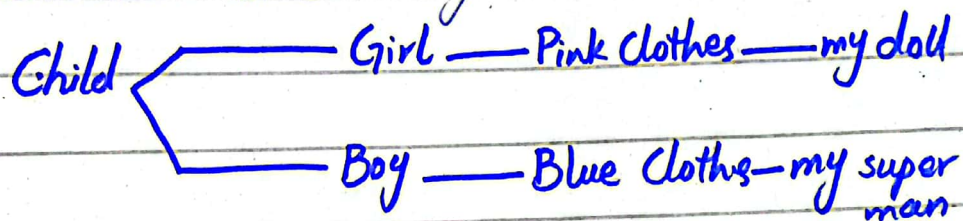 Girl — Pink Clothes — my doll
Child
Boy — Blue Clothes — my super
man